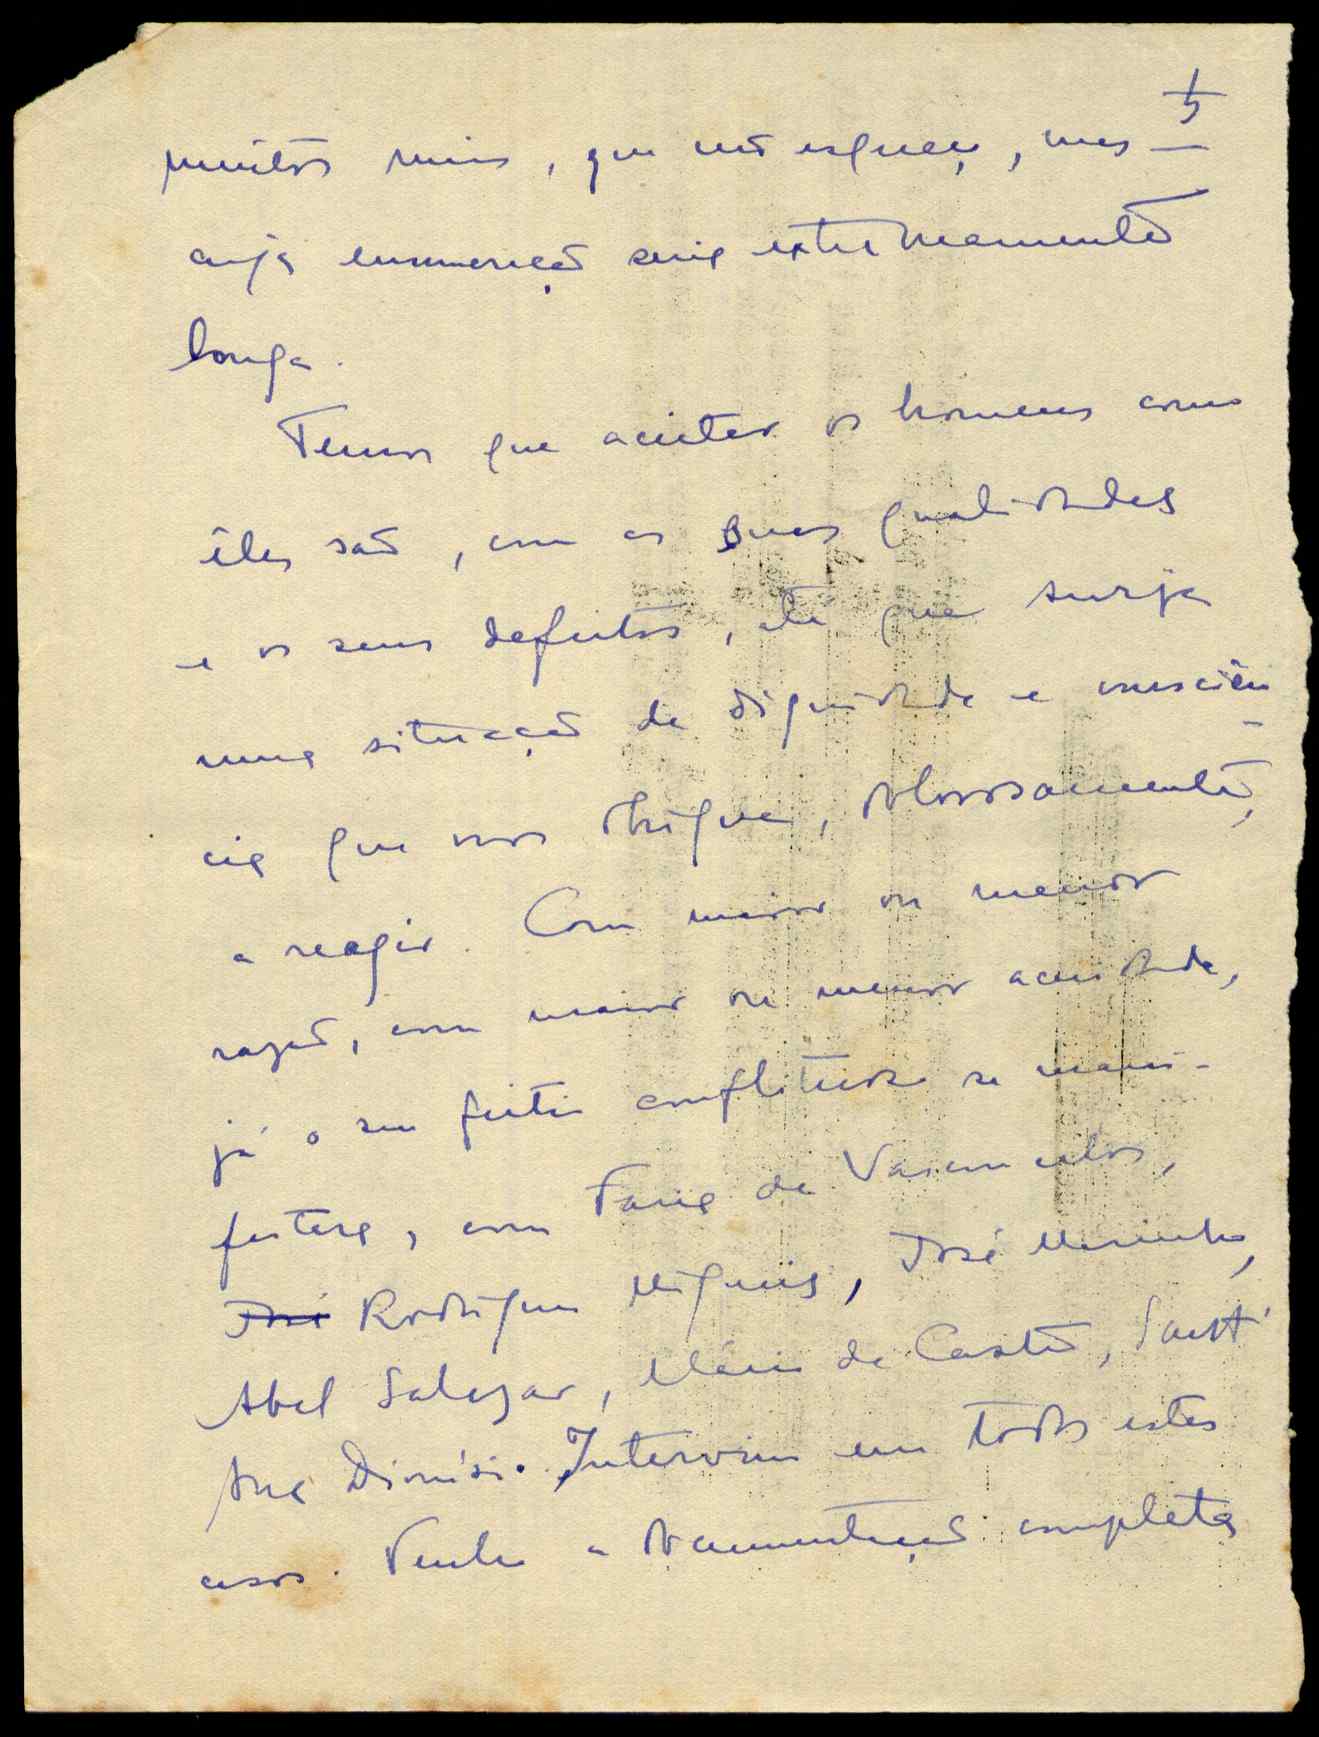 5
muitos mais, que não esqueço, mas
cuja enumeração seria extremamente
longa.
Temos que aceitar os homens como
êles são, com as suas qualidades
e os seus defeitos, até que surja
uma situação de dignidade e consciên-
cia que nos obrigue, dolorosamente,
a reagir. Com maior ou menor
razão, com maior ou menor acuidade,
já o seu feitio conflituoso se mani-
festara, com Faria de Vasconcelos,
José Rodrigues Miguéis, José Marinho,
Abel Salazar, Mário de Castro, Sant'
Ana Dionísio. Intervim em todos estes
casos. Tenho a documentação completa